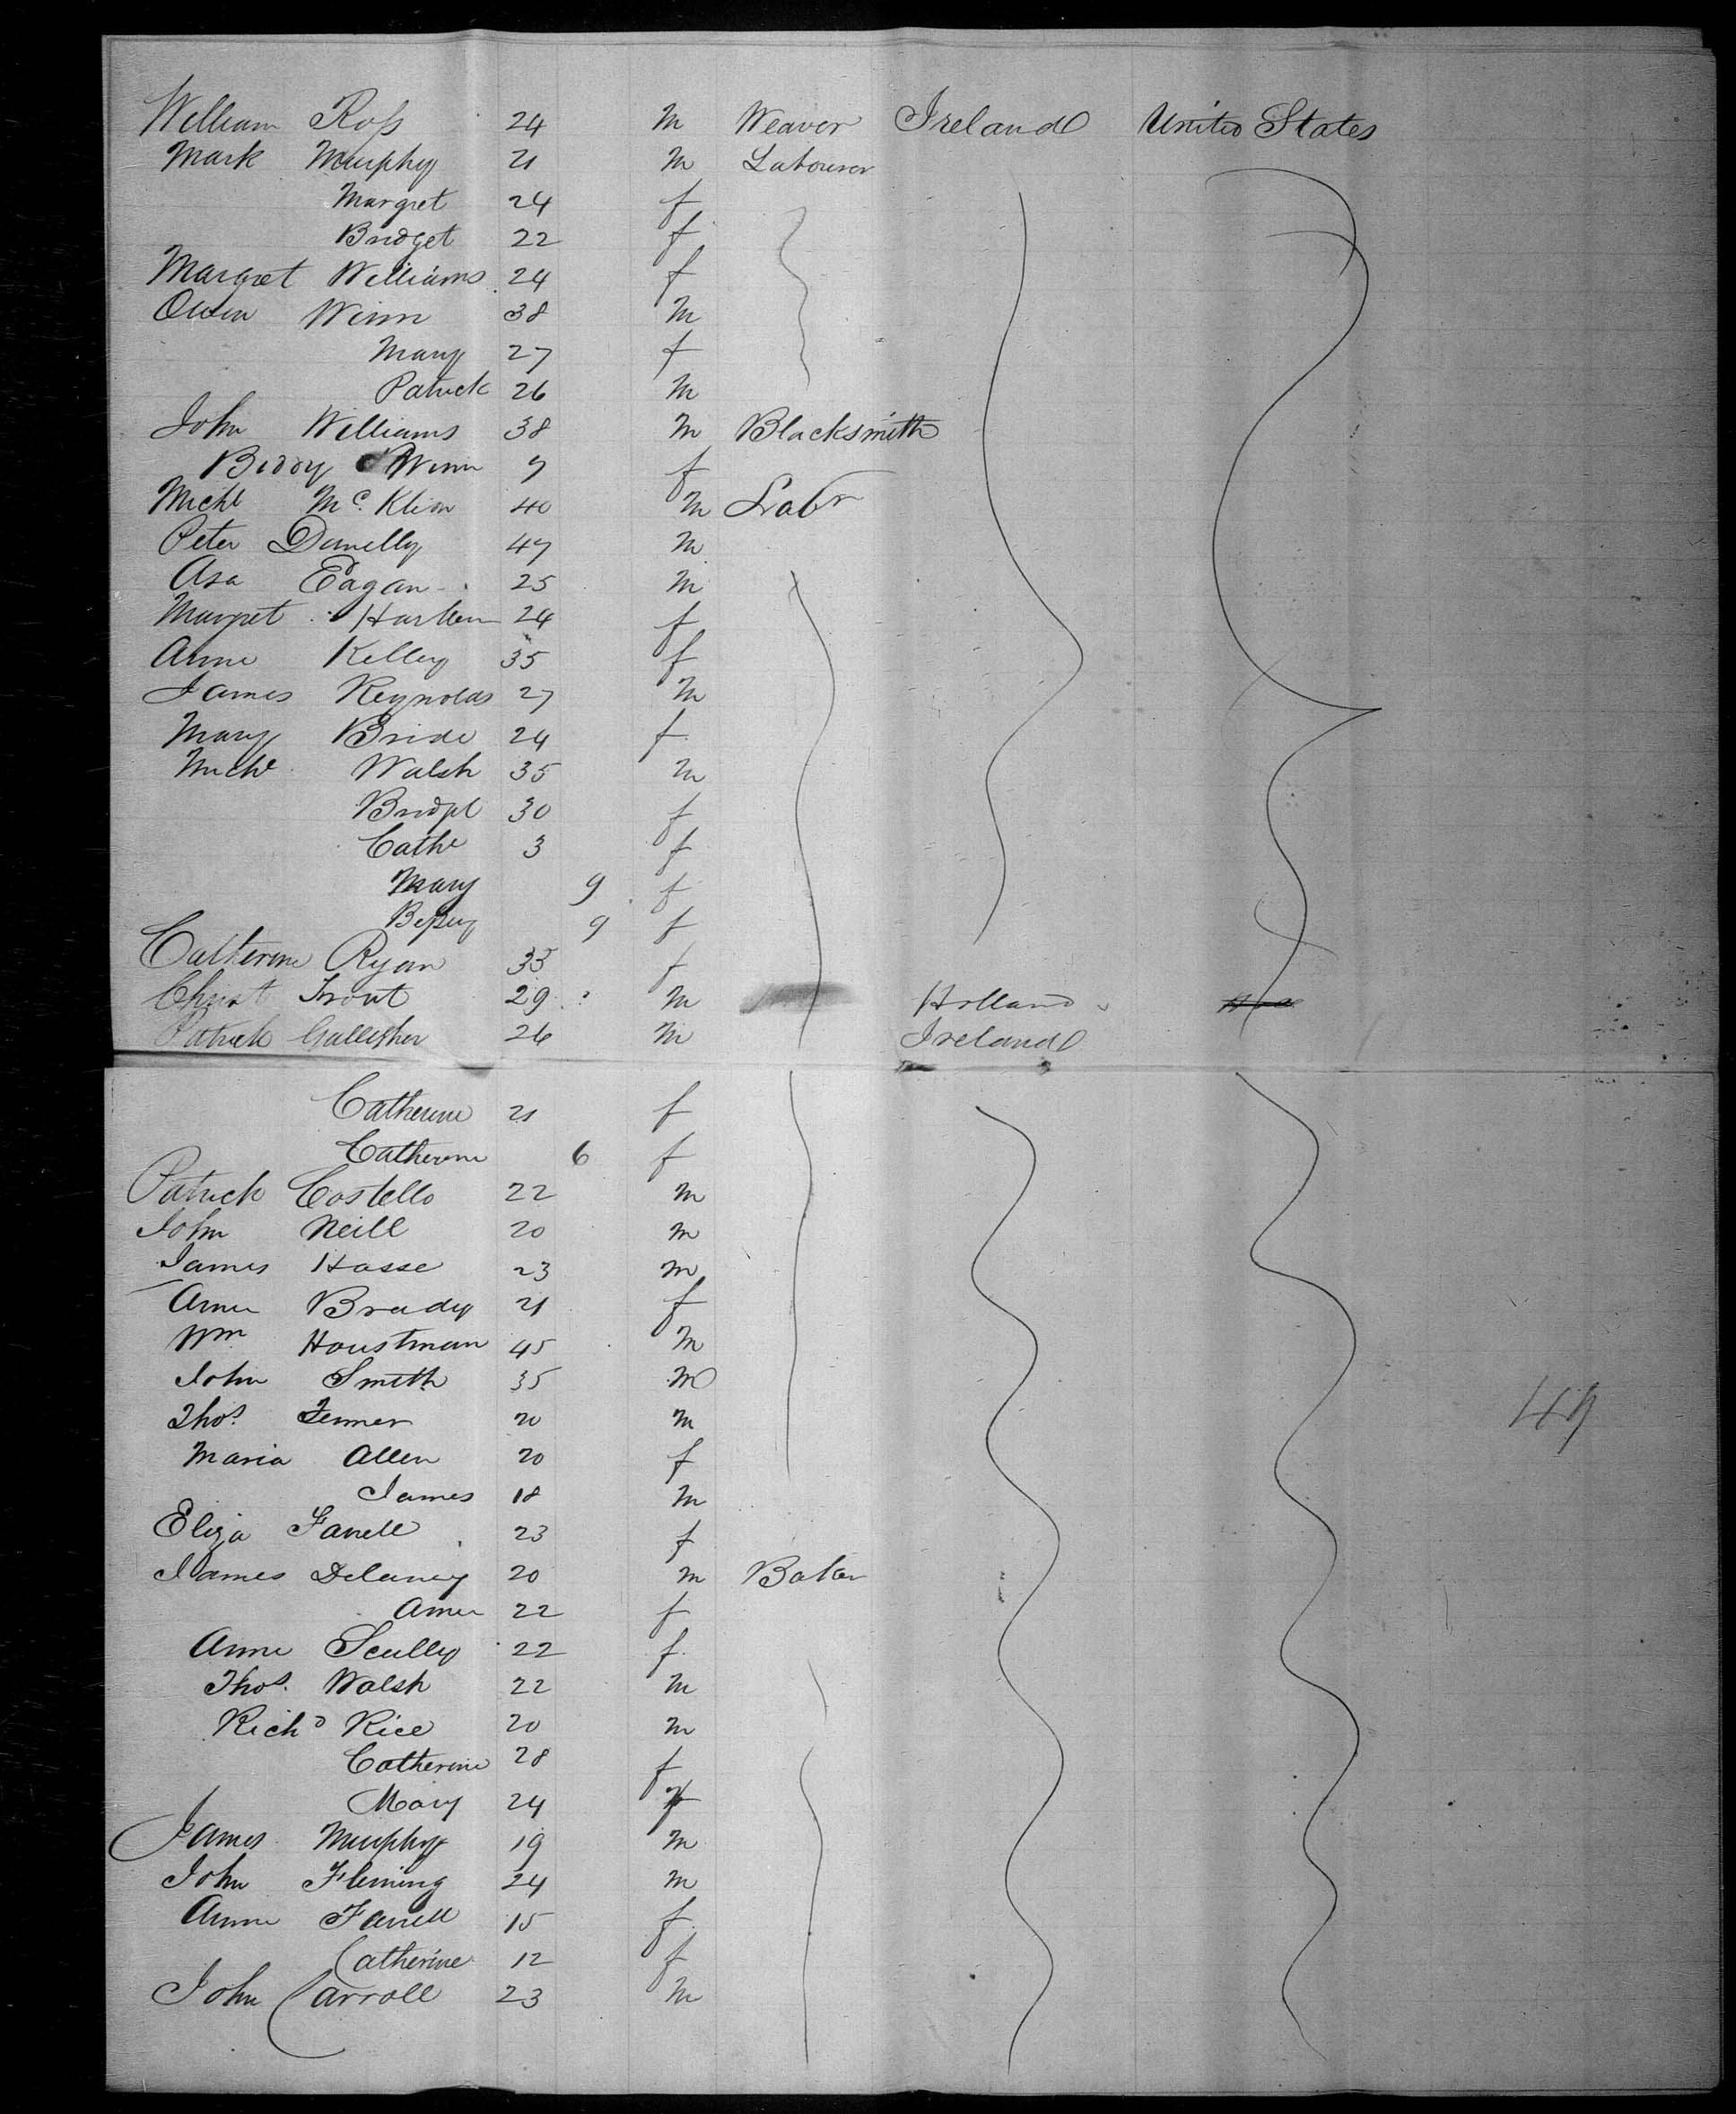 William Ross 24 m Weaver Ireland United States
Mark Murphy 21 m Labourer
Margret 24 f
Bridget 22 f
Margret Williams 24 f
Owen Winn 38 m
Mary 27 f
Patrick 26 m
John Williams 38 m Blacksmith
Biddy Winn 9 f
Michl McKlion 40 m Labr
Peter Donnelly 47 m
Asa Eagan 25 m
Margret 24 f
Anne Kelley 35 f
James Reynolds 27 m
Mary Bride 24 f
Michl Walsh 35 m
Bridgt 30 f
Cathe 3 f
Mary 9 f
Bessy 9 f
Catherine Ryan 35 f
Christ Front 29 m Holland
Patrick Gallegher 26 m Ireland
Catherine 21 f
Catherine 6 f
Patrick Costello 22 m
John Neill 20 m
James Hasse 23 m
Anne Brady 21 f
Wm Houstman 45 m
John Smith 35 m
Thos. Fenner 20 m
Maria Allen 20 f
James 18 m
Eliza Farrell 23 f
James Delaney 20 m Baker
Anne 22 f
Anne Scully 22 f
Thos. Walsh 22 m
Richd Rice 20 m
Catherine 28 f
Mary 24 f
James Murphy 19 m
John Fleming 24 m
Anne Farrell 15 f
Catherine 12 f
John Carroll 23 m
49